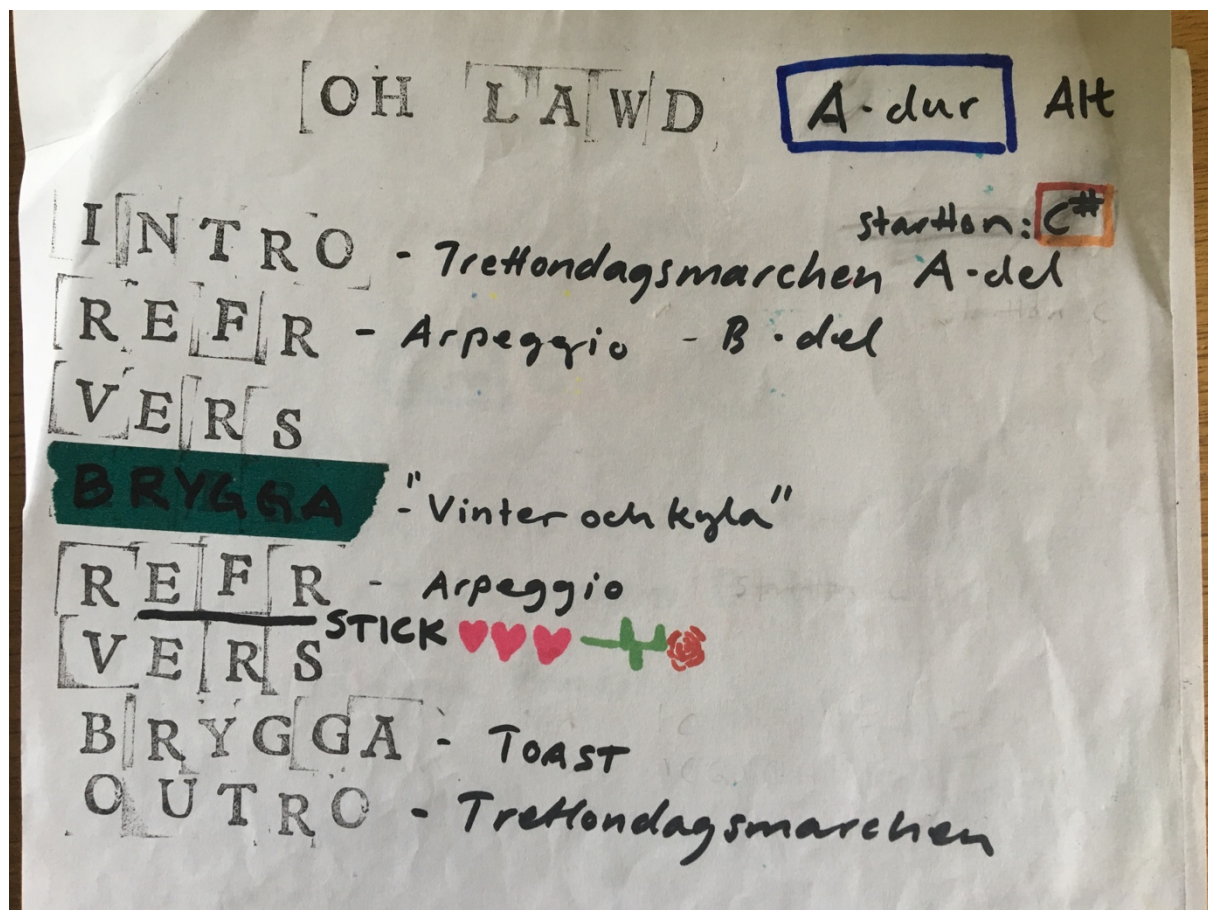 OH LAWD A-dur Alt
startton: C#
INTRO - Trettondagsmarchen A-del
REFR - Arpeggio - B-del
VERS
BRYGGA - "Vinter och kyla"
REFR - Arpeggio
STICK
VERS
BRYGGA - TOAST
OUTRO - Trettondagsmarchen